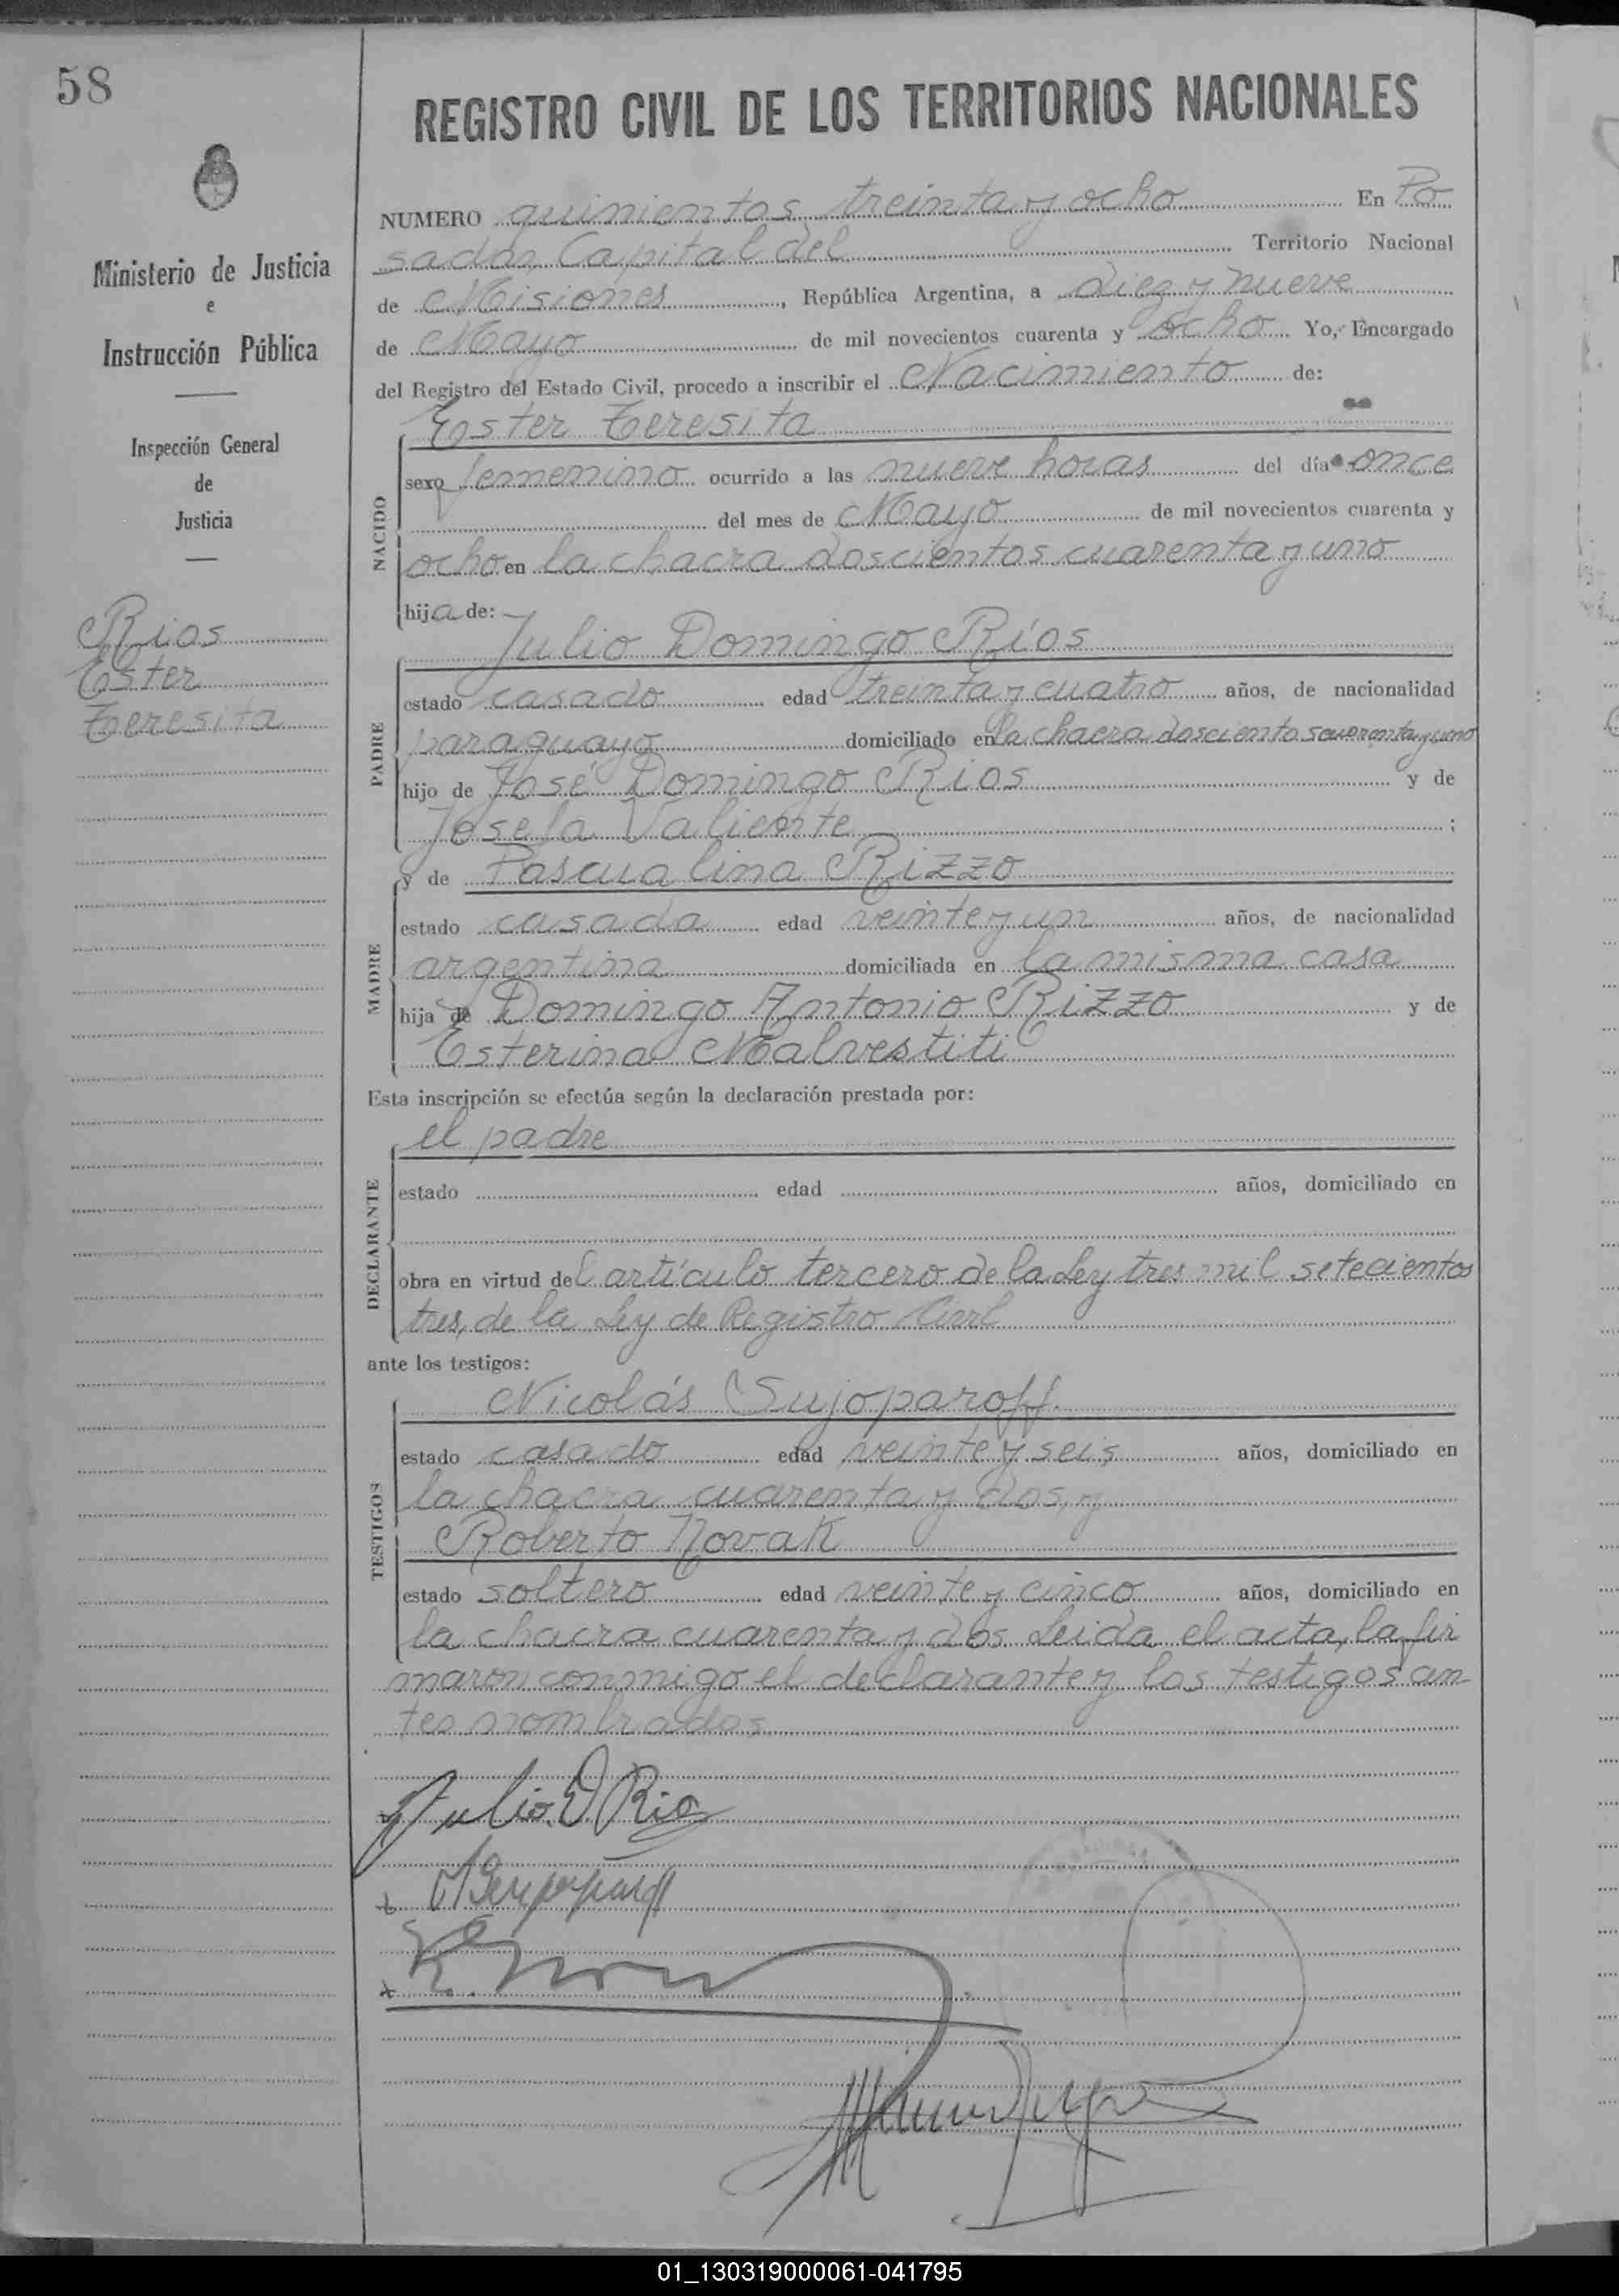 58
REGISTRO CIVIL DE LOS TERRITORIOS NACIONALES
Ministerio de Justicia
e
Instrucción Pública
Inspección General
de
Justicia
Rios
Ester
Teresita
NUMERO quinientos treinta y ocho En Po
sadas Capital del Territorio Nacional
de Misiones, República Argentina, a diez y nueve
de Mayo de mil novecientos cuarenta y ocho Yo, Encargado
del Registro del Estado Civil, procedo a inscribir el Nacimiento de:
NACIDO
Ester Teresita
sexo femenino ocurrido a las nueve horas del día once
del mes de Mayo de mil novecientos cuarenta y
ocho en la chacra doscientos cuarenta y uno
hija de:
PADRE
Julio Domingo Ríos
estado casado edad treinta y cuatro años, de nacionalidad
paraguayo domiciliado en la chacra doscientos cuarenta y uno
hijo de José Domingo Rios y de
Josefa Valiente;
MADRE
y de Pascualina Rizzo
estado casada edad veinte y un años, de nacionalidad
argentina domiciliada en la misma casa
hija de Domingo Antonio Rizzo y de
Esterina Malvestiti
Esta inscripción se efectúa según la declaración prestada por:
DECLARANTE
el padre
estado edad años, domiciliado en
obra en virtud del artículo tercero de la Ley tres mil setecientos
tres, de la Ley de Registro Civil
ante los testigos:
TESTIGOS
Nicolás Sujoparoff.
estado casado edad veinte y seis años, domiciliado en
la chacra cuarenta y dos, y
Roberto Novak
estado soltero edad veinte y cinco años, domiciliado en
la chacra cuarenta y dos. Leida el acta, la fir
maron conmigo el declarante y los testigos an-
tes nombrados
Julio. D. Rios
01_130319000061-041795